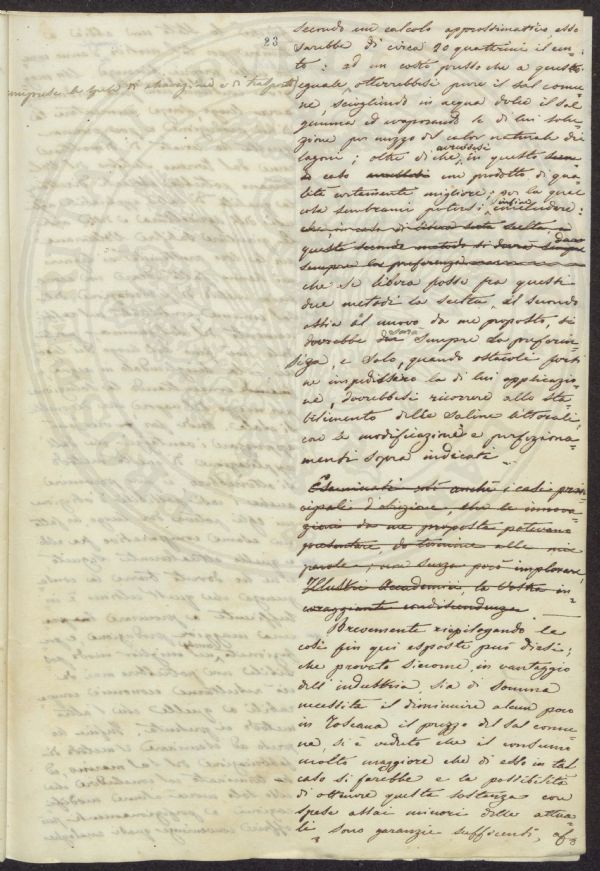 23
secondo un calcolo approssimativo esso
sarebbe di circa 20 quattrini il cen-
to: ad un costo presso che a questo
comprese le spese di estrazione e di trasporto
eguale, otterrebbesi pure il sal comu-
ne, sciogliendo in acqua dolce il sal
gemma ed evaporando la di lui solu-
zione per mezzo del calor naturale dei
lagoni; oltre di che in questo
avressesi
caso un prodotto di qua-
lità certamente migliore; per la qual
cosa sembrami potersi concludere:
infine
che, in caso di libera scelta a
questo secondo metodo si darà
sempre la preferenza
che se libera fosse fra questi
due metodi la scelta, al secondo
ossia al nuovo da me proposto, si
dovrebbe dar sempre la preferen-
za, e solo, quando ostacoli forti
ne impedissero la di lui applicazio-
ne, dovrebbesi ricorrere allo sta-
bilimento delle saline littorali,
con le modificazioni e perfeziona-
menti sopra indicati.
Esaminati così anche i casi prin-
cipali d'obiezione, che le innova-
zioni da me proposte potevano
presentare, do termine alle mie
parole; non senza però implorare,
Illustri Accademici, la Vostra in-
coraggiante condiscendenza
Brevemente riepilogando le
cose fin qui esposte può dirsi:
che provato siccome, in vantaggio
dell'industria, sia di somma
necessità il diminuire alcun poco
in Toscana il prezzo del sal comu-
ne, si è veduto che il consumo
molto maggiore che di esso in tal
caso si farebbe e la possibilità
di ottenere questa sostanza con
spese assai minori delle attua-
li sono garanzie sufficienti, af-